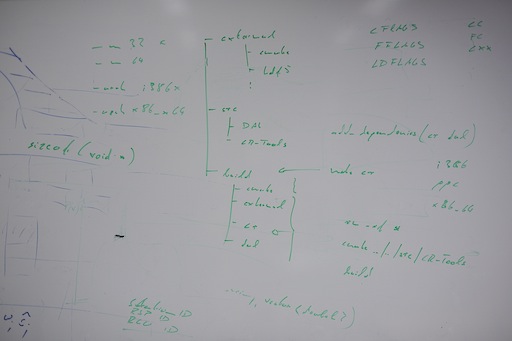 -m 32
-m 64
-arch i386
-arch x86_64
sizeof(void*)
external
cmake
src
DAL
CR-Tools
build
cmake
external
cr
dal
CFLAGS
FFLAGS
LDFLAGS
CC
FC
CXX
add_dependencies(cr dal)
make cr
i386
ppc
x86_64
rm -rf *
cmake ../../src/CR-Tools
build
Station ID
RSP ID
RCU ID
vector<double>